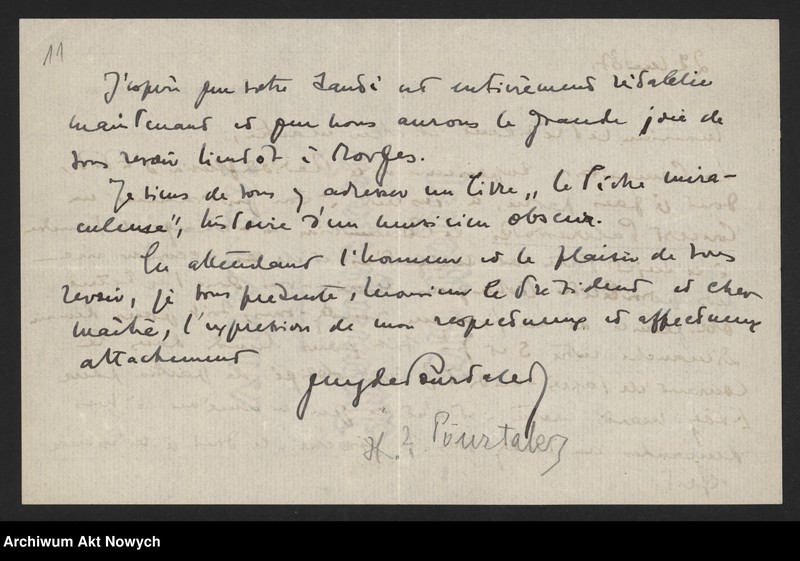 11
J'espère que votre santé est entièrement rétablie
maintenant et que nous aurons la grande joie de
vous revoir bientôt à Morges.
Je viens de vous y adresser un livre „ la Pêche mira-
culeuse", histoire d'un musicien obscur.
En attendant l'honneur et le plaisir de vous
revoir, je vous présente, Monsieur le Président et cher
Maître, l'expression de mon respectueux et affectueux
attachement
Guy de Pourtalès
Pourtalez
Archiwum Akt Nowych